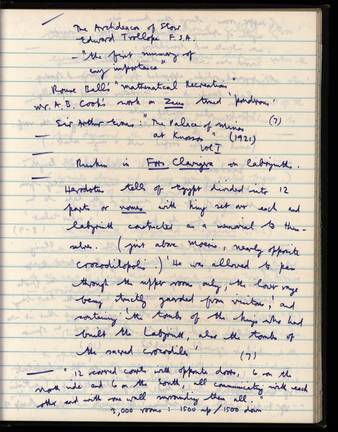 The Archdeacon of Stow
Edward Trollope F.S.A.
— "the first summary of
any importance"
Rouse Ball's "Mathematical Recreation"
Mr. A. B. Cook's work on Zeus
Sir Arthur Evans "The Palace of Minos (7)
at Knossos" (1921)
Vol I
Ruskin in Fors Clavigera on Labyrinths.
Herodotus tells of Egypt divided into 12
parts or nomes with king set over each and
labyrinth constructed as a memorial to them-
selves. (just above Moeris, nearly opposite
Crocodilopolis) 'He was allowed to pass
through the upper rooms only, the lower range
being strictly guarded from visitors,' and
containing 'the tombs of the kings who had
built the Labyrinth, also the tombs of
the sacred crocodiles' (7)
— "12 covered courts with opposite doors, 6 on the
north side and 6 on the south, all communicating with each
other and with one wall surrounding them all."
3,000 rooms : 1500 up / 1500 down